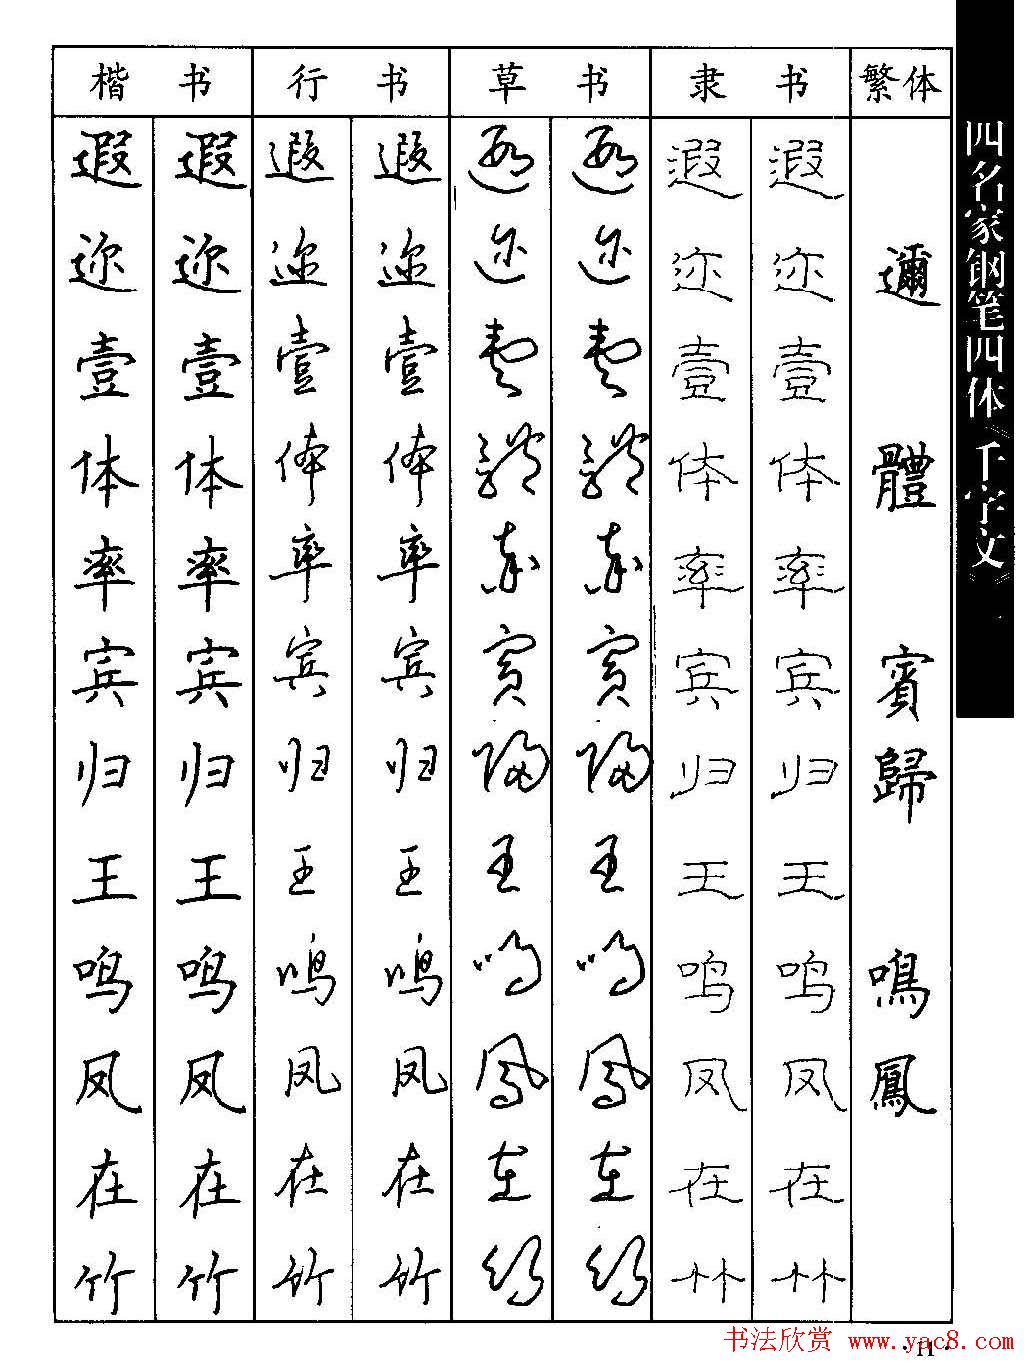 楷 书 行 书 草 书 隶 书 繁体
遐 遐 遐 遐 遐 遐 遐 遐
迩 迩 迩 迩 迩 迩 迩 迩 邇
壹 壹 壹 壹 壹 壹 壹 壹
体 体 体 体 体 体 体 体 體
率 率 率 率 率 率 率 率
宾 宾 宾 宾 賓 賓 宾 宾 賓
归 归 归 归 歸 歸 归 归 歸
王 王 王 王 王 王 王 王
鸣 鸣 鸣 鸣 鸣 鸣 鸣 鸣 鳴
凤 凤 凤 凤 鳳 鳳 凤 凤 鳳
在 在 在 在 在 在 在 在
竹 竹 竹 竹 竹 竹 竹 竹
四名家钢笔四体《千字文》
书法欣赏 www.yac8.com
·11·